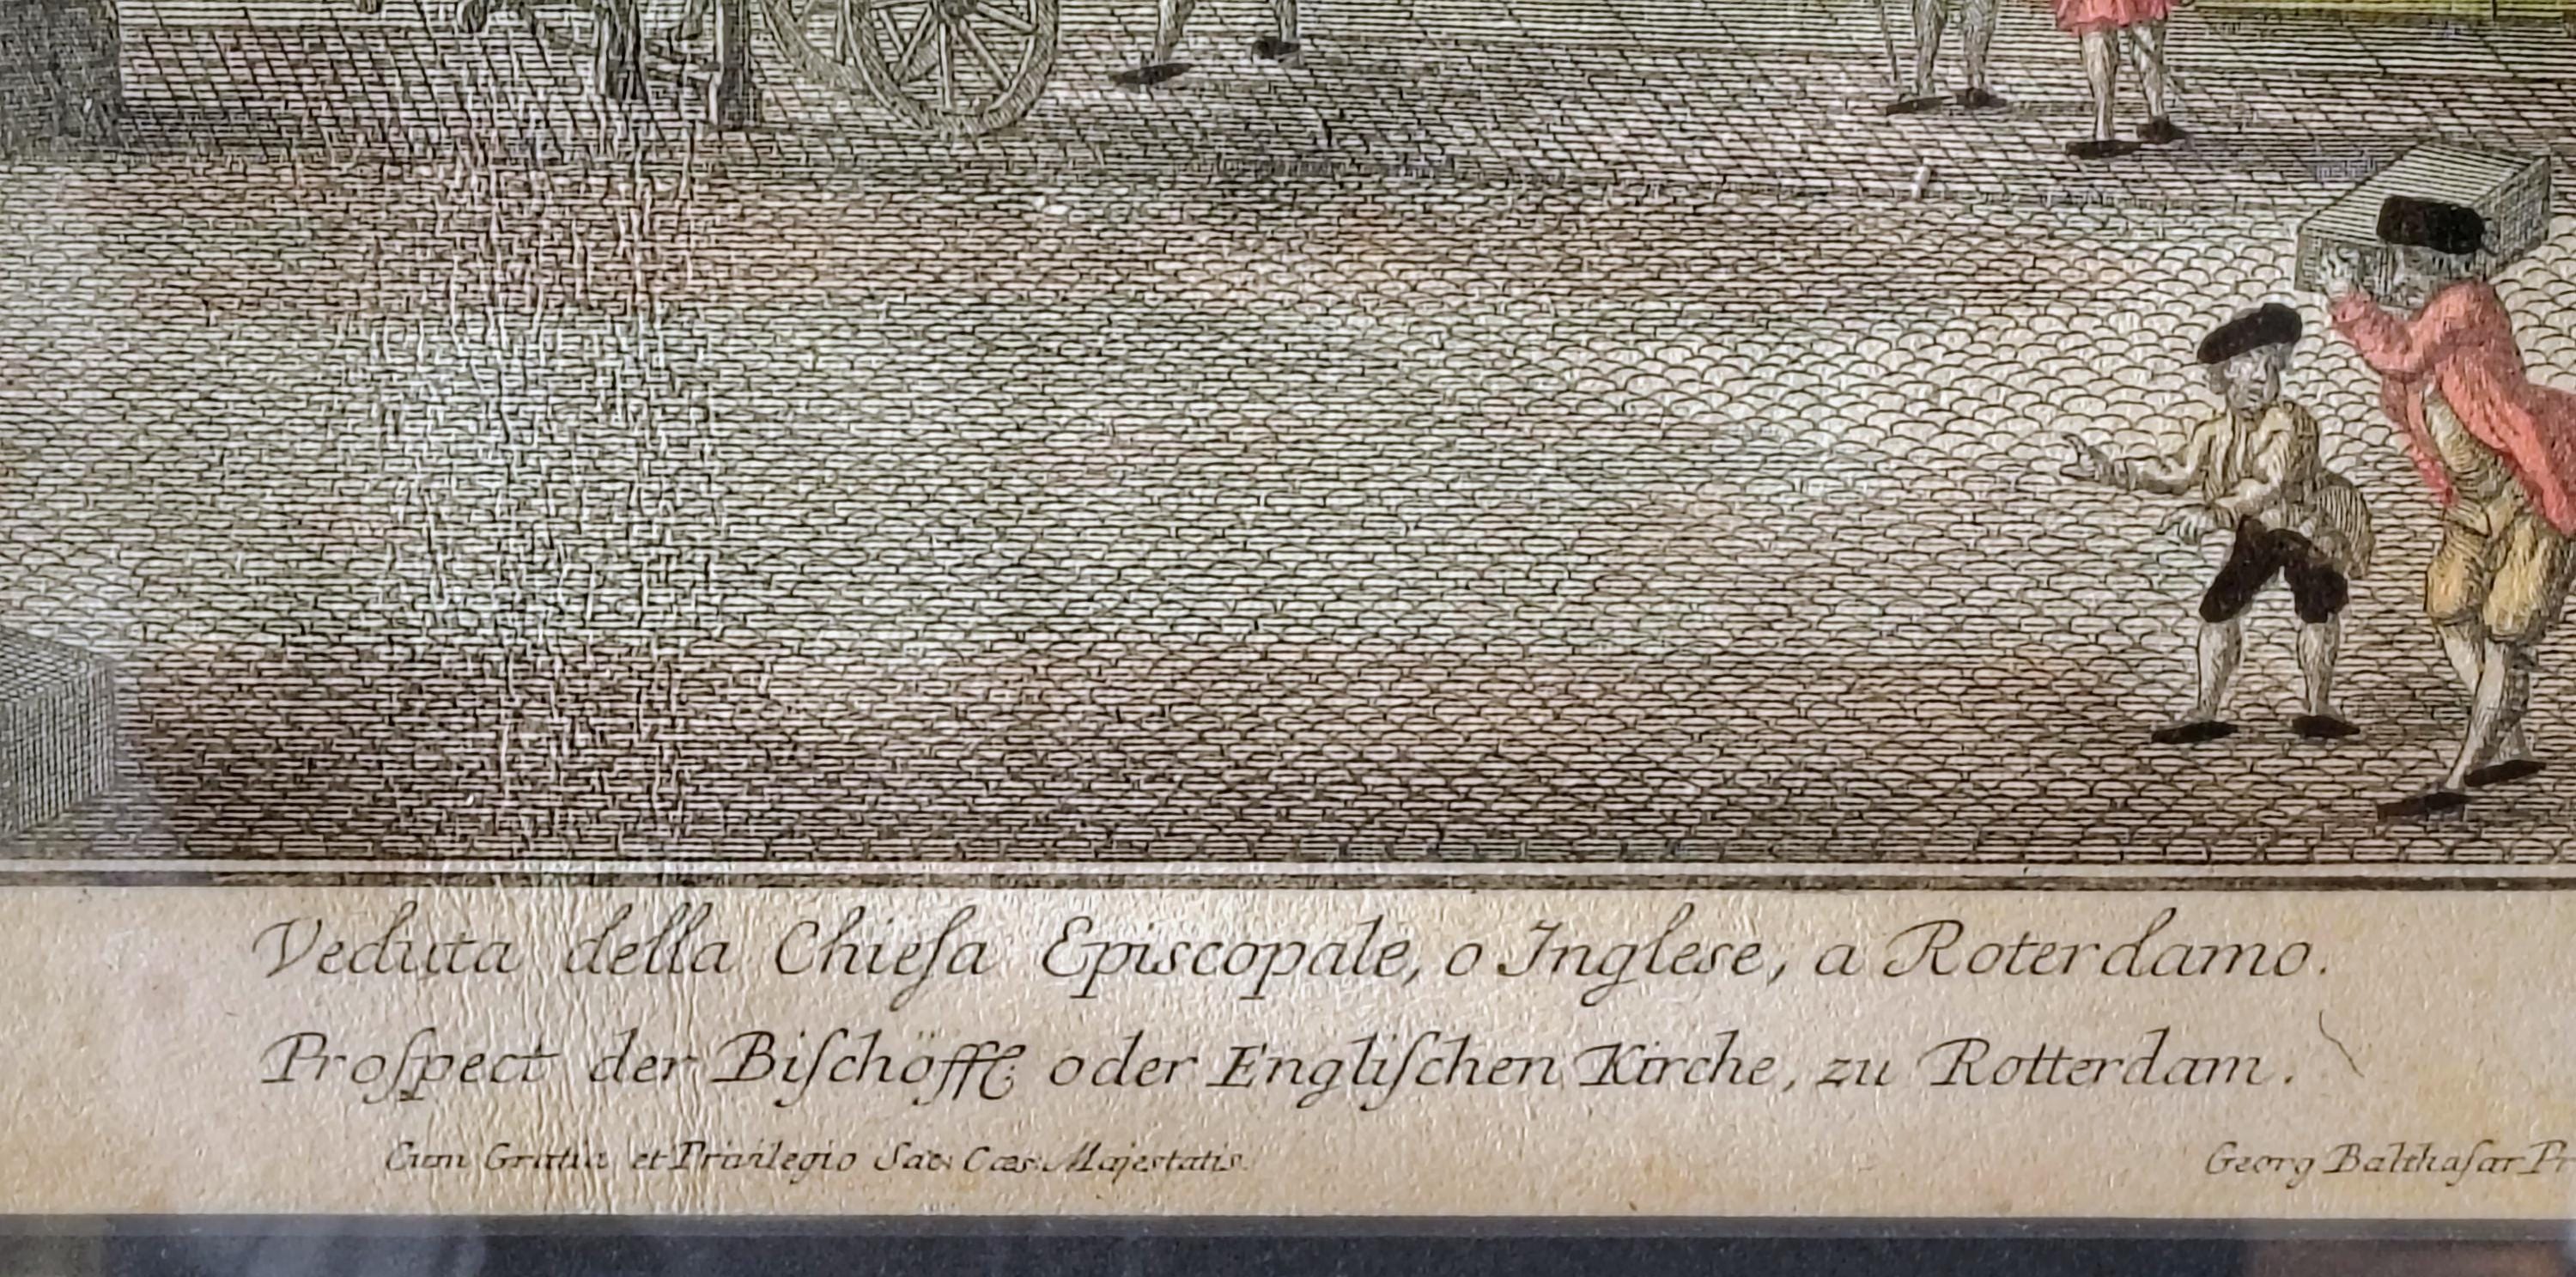 Veduta della Chieſa Episcopale, o Inglese, a Roterdamo.
Proſpect der Biſchöffl: oder Engliſchen Kirche, zu Rotterdam.
Cum Gratia et Privilegio Sac: Cæs: Majestatis.
Georg Balthaſar Pr